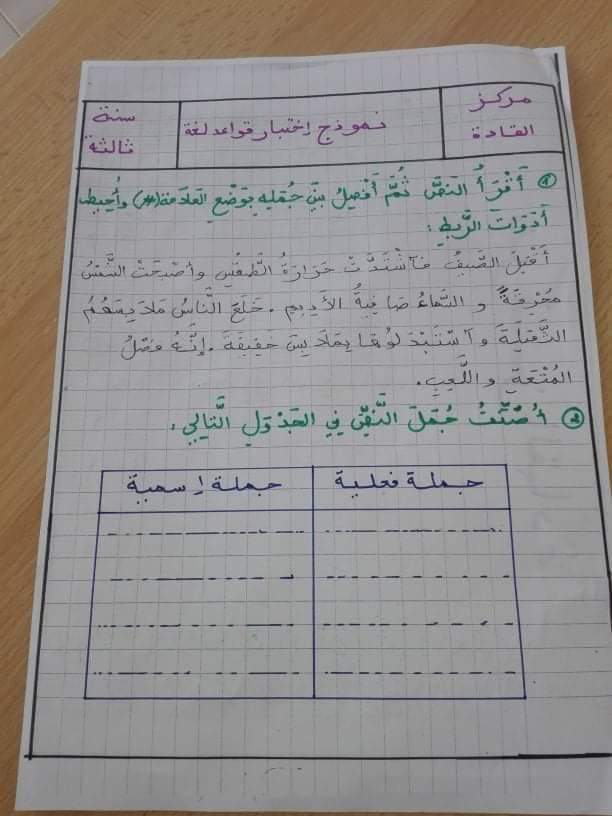 مركز القادة
نموذج إختبار قواعد لغة
سنة ثالثة
① أَقْرَأُ النَصَّ ثُمَّ أَفْصِلُ بَيْنَ جُمَلِهِ بِوَضْعِ العَلَامَة (#) وأُحِيطُ
أَدَوَاتَ الرَّبْطِ :
أَقْبَلَ الصَّيْفُ فَاشْتَدَّتْ حَرَارَةُ الطَّقْسِ وأَصْبَحَتْ الشَّمْسُ
مُحْرِقَةً و السَّمَاءُ صَافِيَةُ الأَدِيمِ . خَلَعَ النَّاسُ مَلَابِسَهُمُ
الثَّقِيلَةَ وَاسْتَبْدَلُوهَا بِمَلَابِسَ خَفِيفَةَ . إِنَّهُ فَصْلُ
المُتْعَةِ و اللَّعِبِ .
② أُصَنِّفُ جُمَلَ النَّصِّ فِي الجَدْوَلِ التَّالِي .
جملة فعلية
جملة إسمية